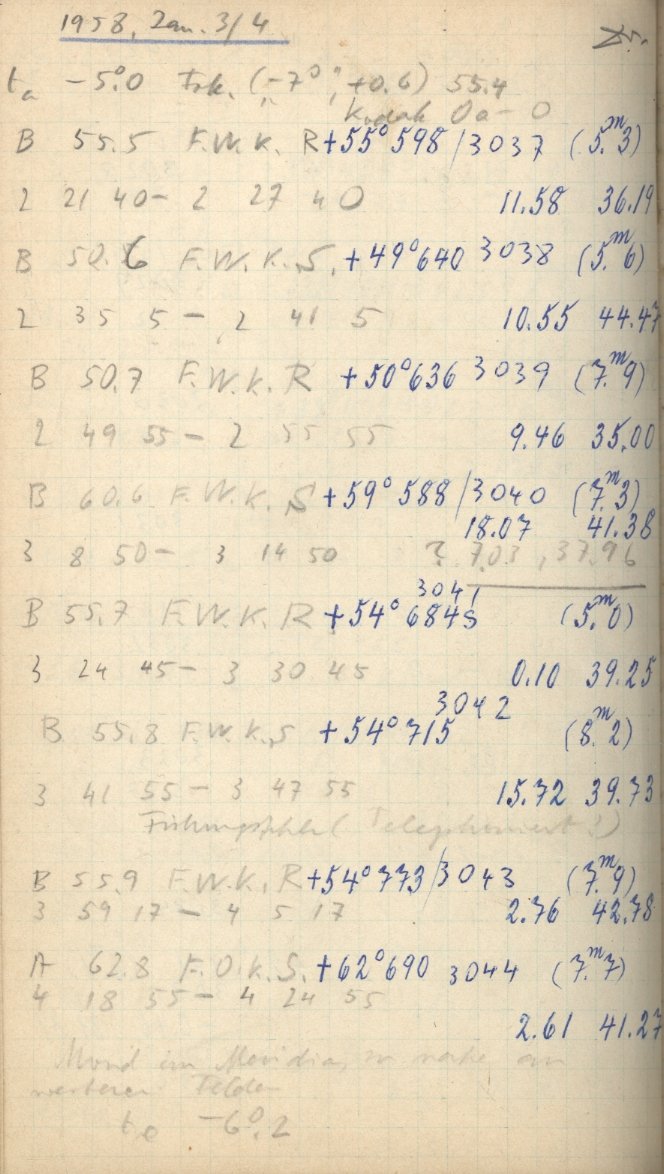 1958, Jan. 3/4
tₐ -5°.0 Fok. (-7°; +0.6) 55.4
Kodak Oa-O
B 55.5 F.W.K. R +55°598/3037 (5.ᵐ3)
2 21 40 - 2 27 40 11.58 36.19
B 50.6 F.W.K.S. +49°640 3038 (5.ᵐ6)
2 35 5 - 2 41 5 10.55 44.47
B 50.7 F.W.K.R +50°636 3039 (7.ᵐ9)
2 49 55 - 2 55 55 9.46 35.00
B 60.6 F.W.K.S +59°588/3040 (7.ᵐ3)
18.07 41.38
3 8 50 - 3 14 50 ? 7.03, 37.96
3041
B 55.7 F.W.K.R +54°684s (5.ᵐ0)
3 24 45 - 3 30 45 0.10 39.25
3042
B 55.8 F.W.K.S +54°715 (8.ᵐ2)
3 41 55 - 3 47 55 15.72 39.73
Führungsfehler (Telephoniert!)
B 55.9 F.W.K.R +54°773/3043 (7.ᵐ9)
3 59 17 - 4 5 17 2.76 42.78
A 62.8 F.O.K.S. +62°690 3044 (7.ᵐ7)
4 18 55 - 4 24 55
2.61 41.27
Mond im Meridian, zu nahe an
weiteren Feldern
tₑ -6°.2